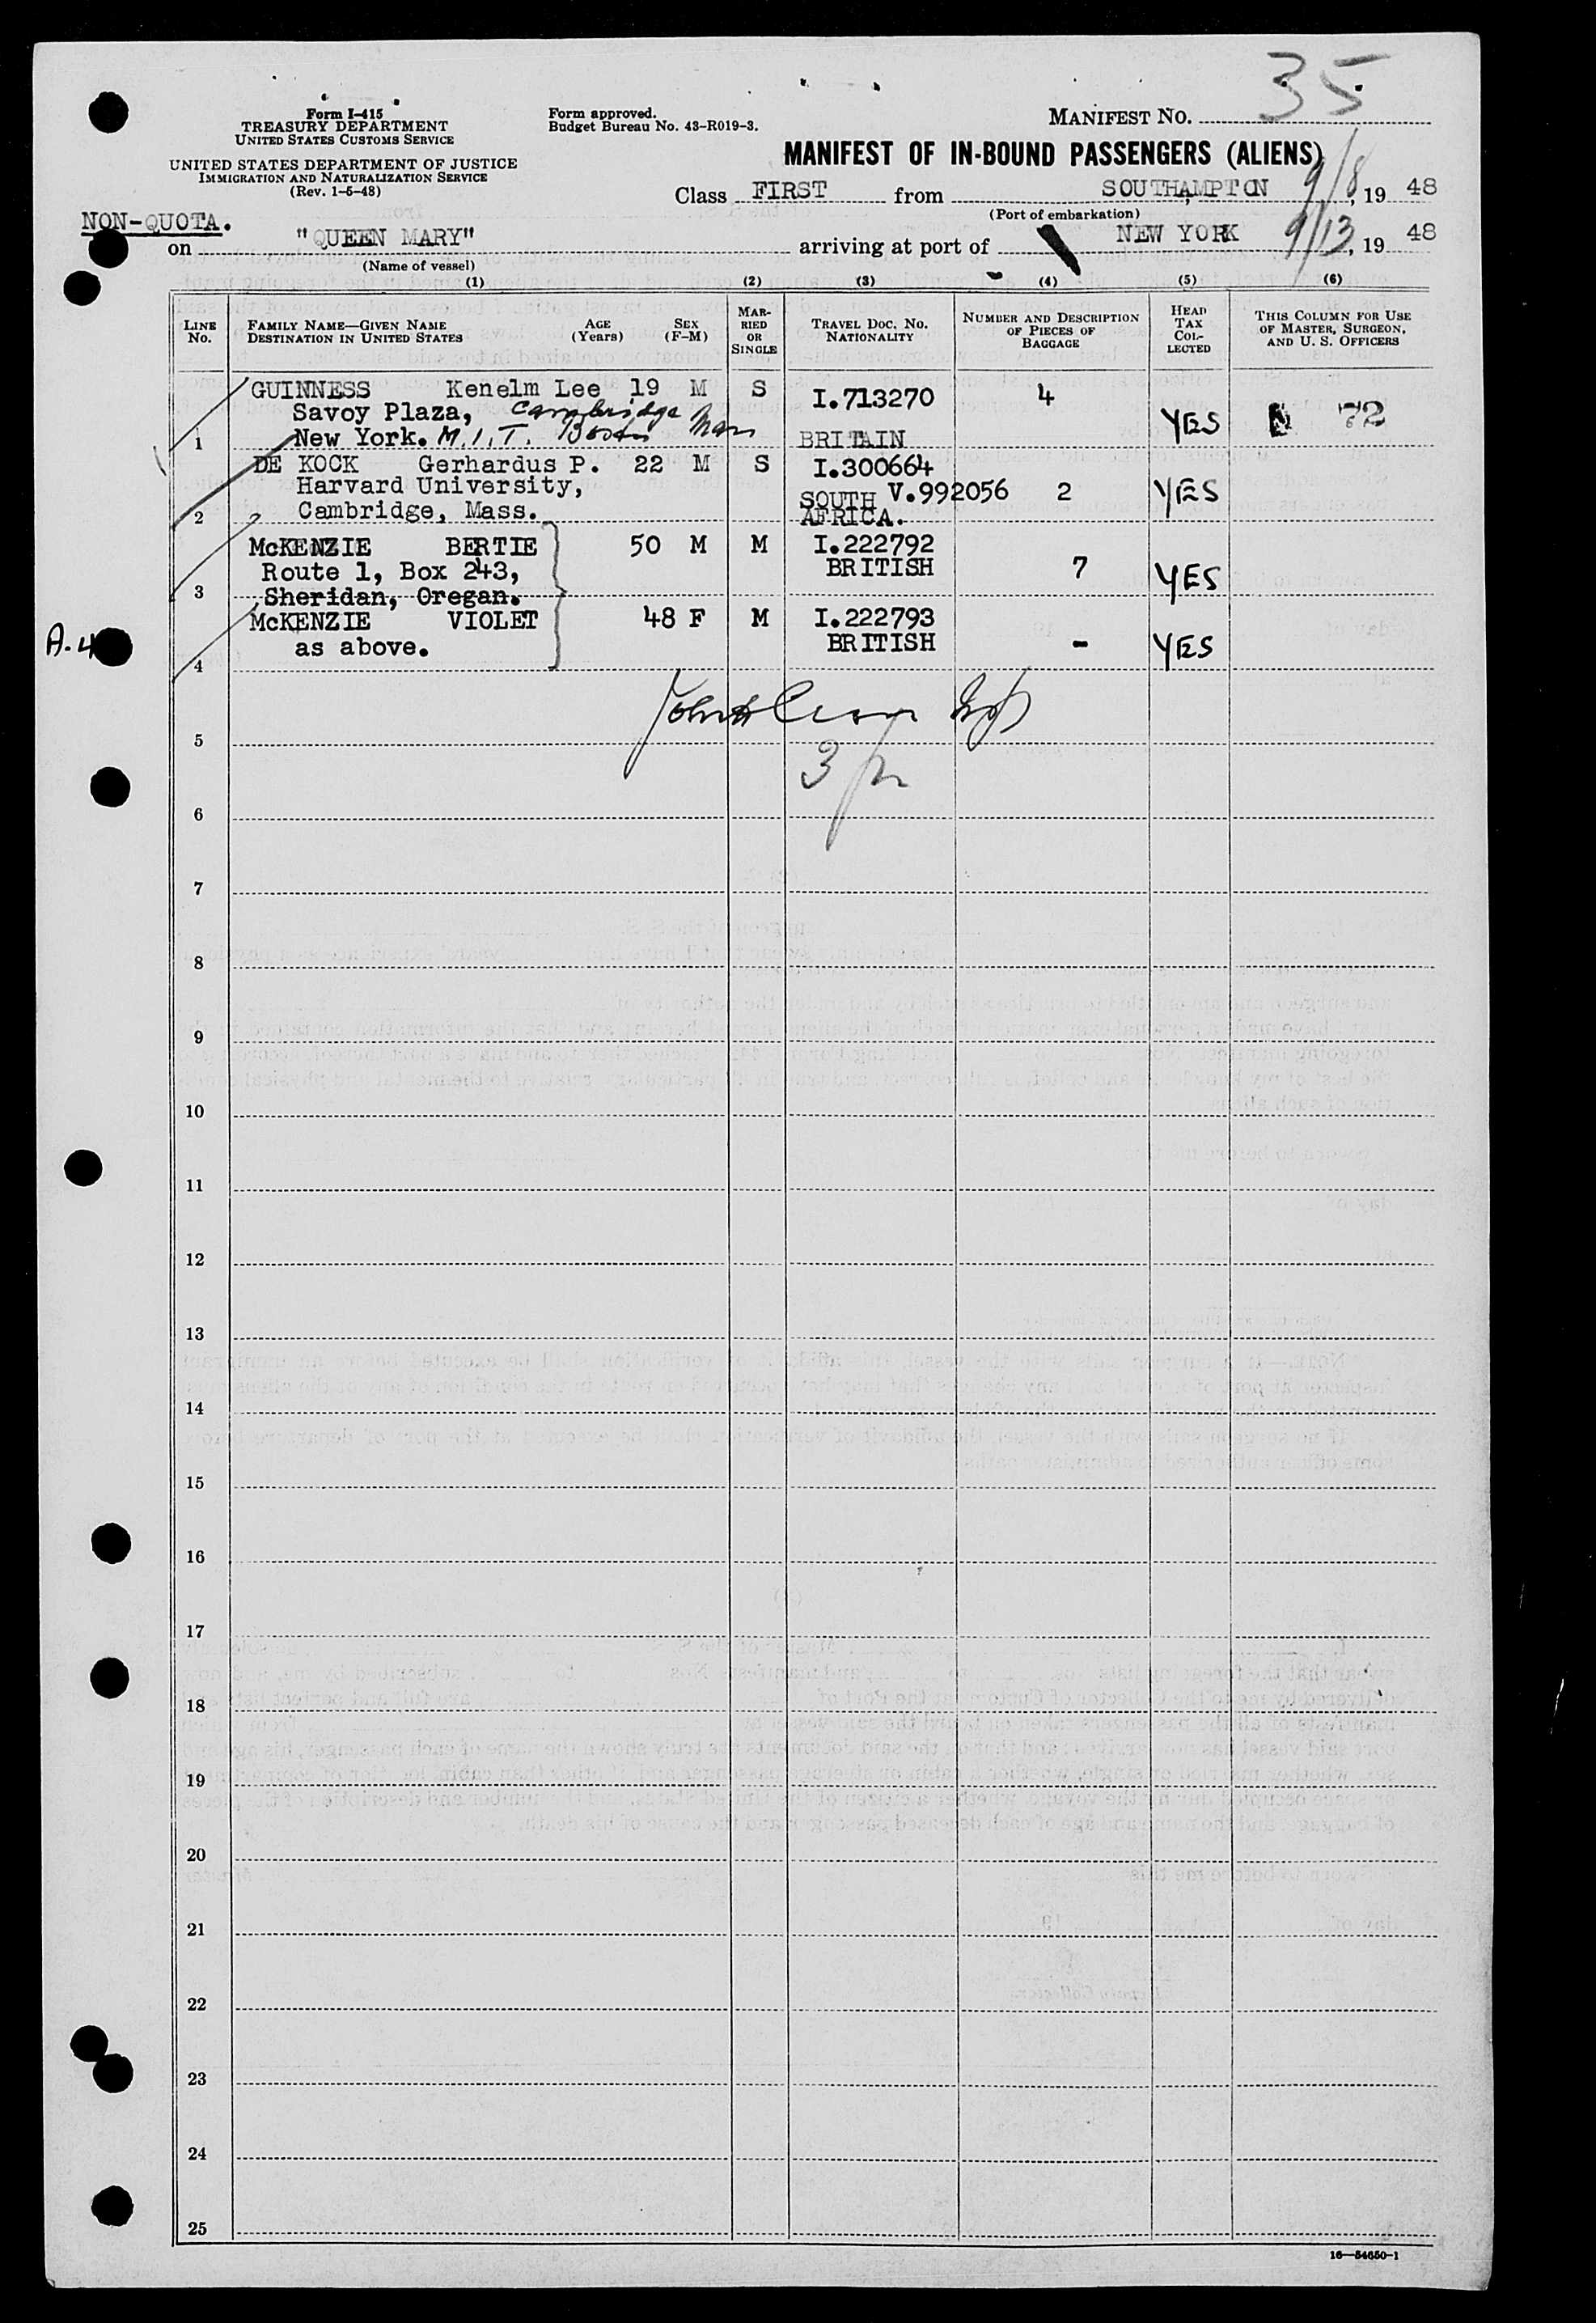 35
Form I-415
TREASURY DEPARTMENT
UNITED STATES CUSTOMS SERVICE
UNITED STATES DEPARTMENT OF JUSTICE
IMMIGRATION AND NATURALIZATION SERVICE
(Rev. 1-5-48)
Form approved.
Budget Bureau No. 43-R019-3.
MANIFEST NO.
MANIFEST OF IN-BOUND PASSENGERS (ALIENS)
Class FIRST from SOUTHAMPTON 9/8, 19 48
(Port of embarkation)
NON-QUOTA.
on "QUEEN MARY" arriving at port of NEW YORK 9/13, 19 48
(Name of vessel)
(1) (2) (3) (4) (5) (6)
LINE No. FAMILY NAME—GIVEN NAME DESTINATION IN UNITED STATES AGE (Years) SEX (F-M) MARRIED OR SINGLE TRAVEL DOC. NO. NATIONALITY NUMBER AND DESCRIPTION OF PIECES OF BAGGAGE HEAD TAX COLLECTED THIS COLUMN FOR USE OF MASTER, SURGEON, AND U. S. OFFICERS
GUINNESS Kenelm Lee 19 M S I.713270 4
Savoy Plaza, Cambridge Mass
1 New York. M.I.T. Boston BRITAIN YES 72
DE KOCK Gerhardus P. 22 M S I.300664
Harvard University, SOUTH V.992056 2 YES
2 Cambridge, Mass. AFRICA.
McKENZIE BERTIE 50 M M I.222792
Route 1, Box 243, BRITISH 7 YES
3 Sheridan, Oregan.
McKENZIE VIOLET 48 F M I.222793
A.4 as above. BRITISH - YES
4
5
3
6
7
8
9
10
11
12
13
14
15
16
17
18
19
20
21
22
23
24
25
16—54650-1